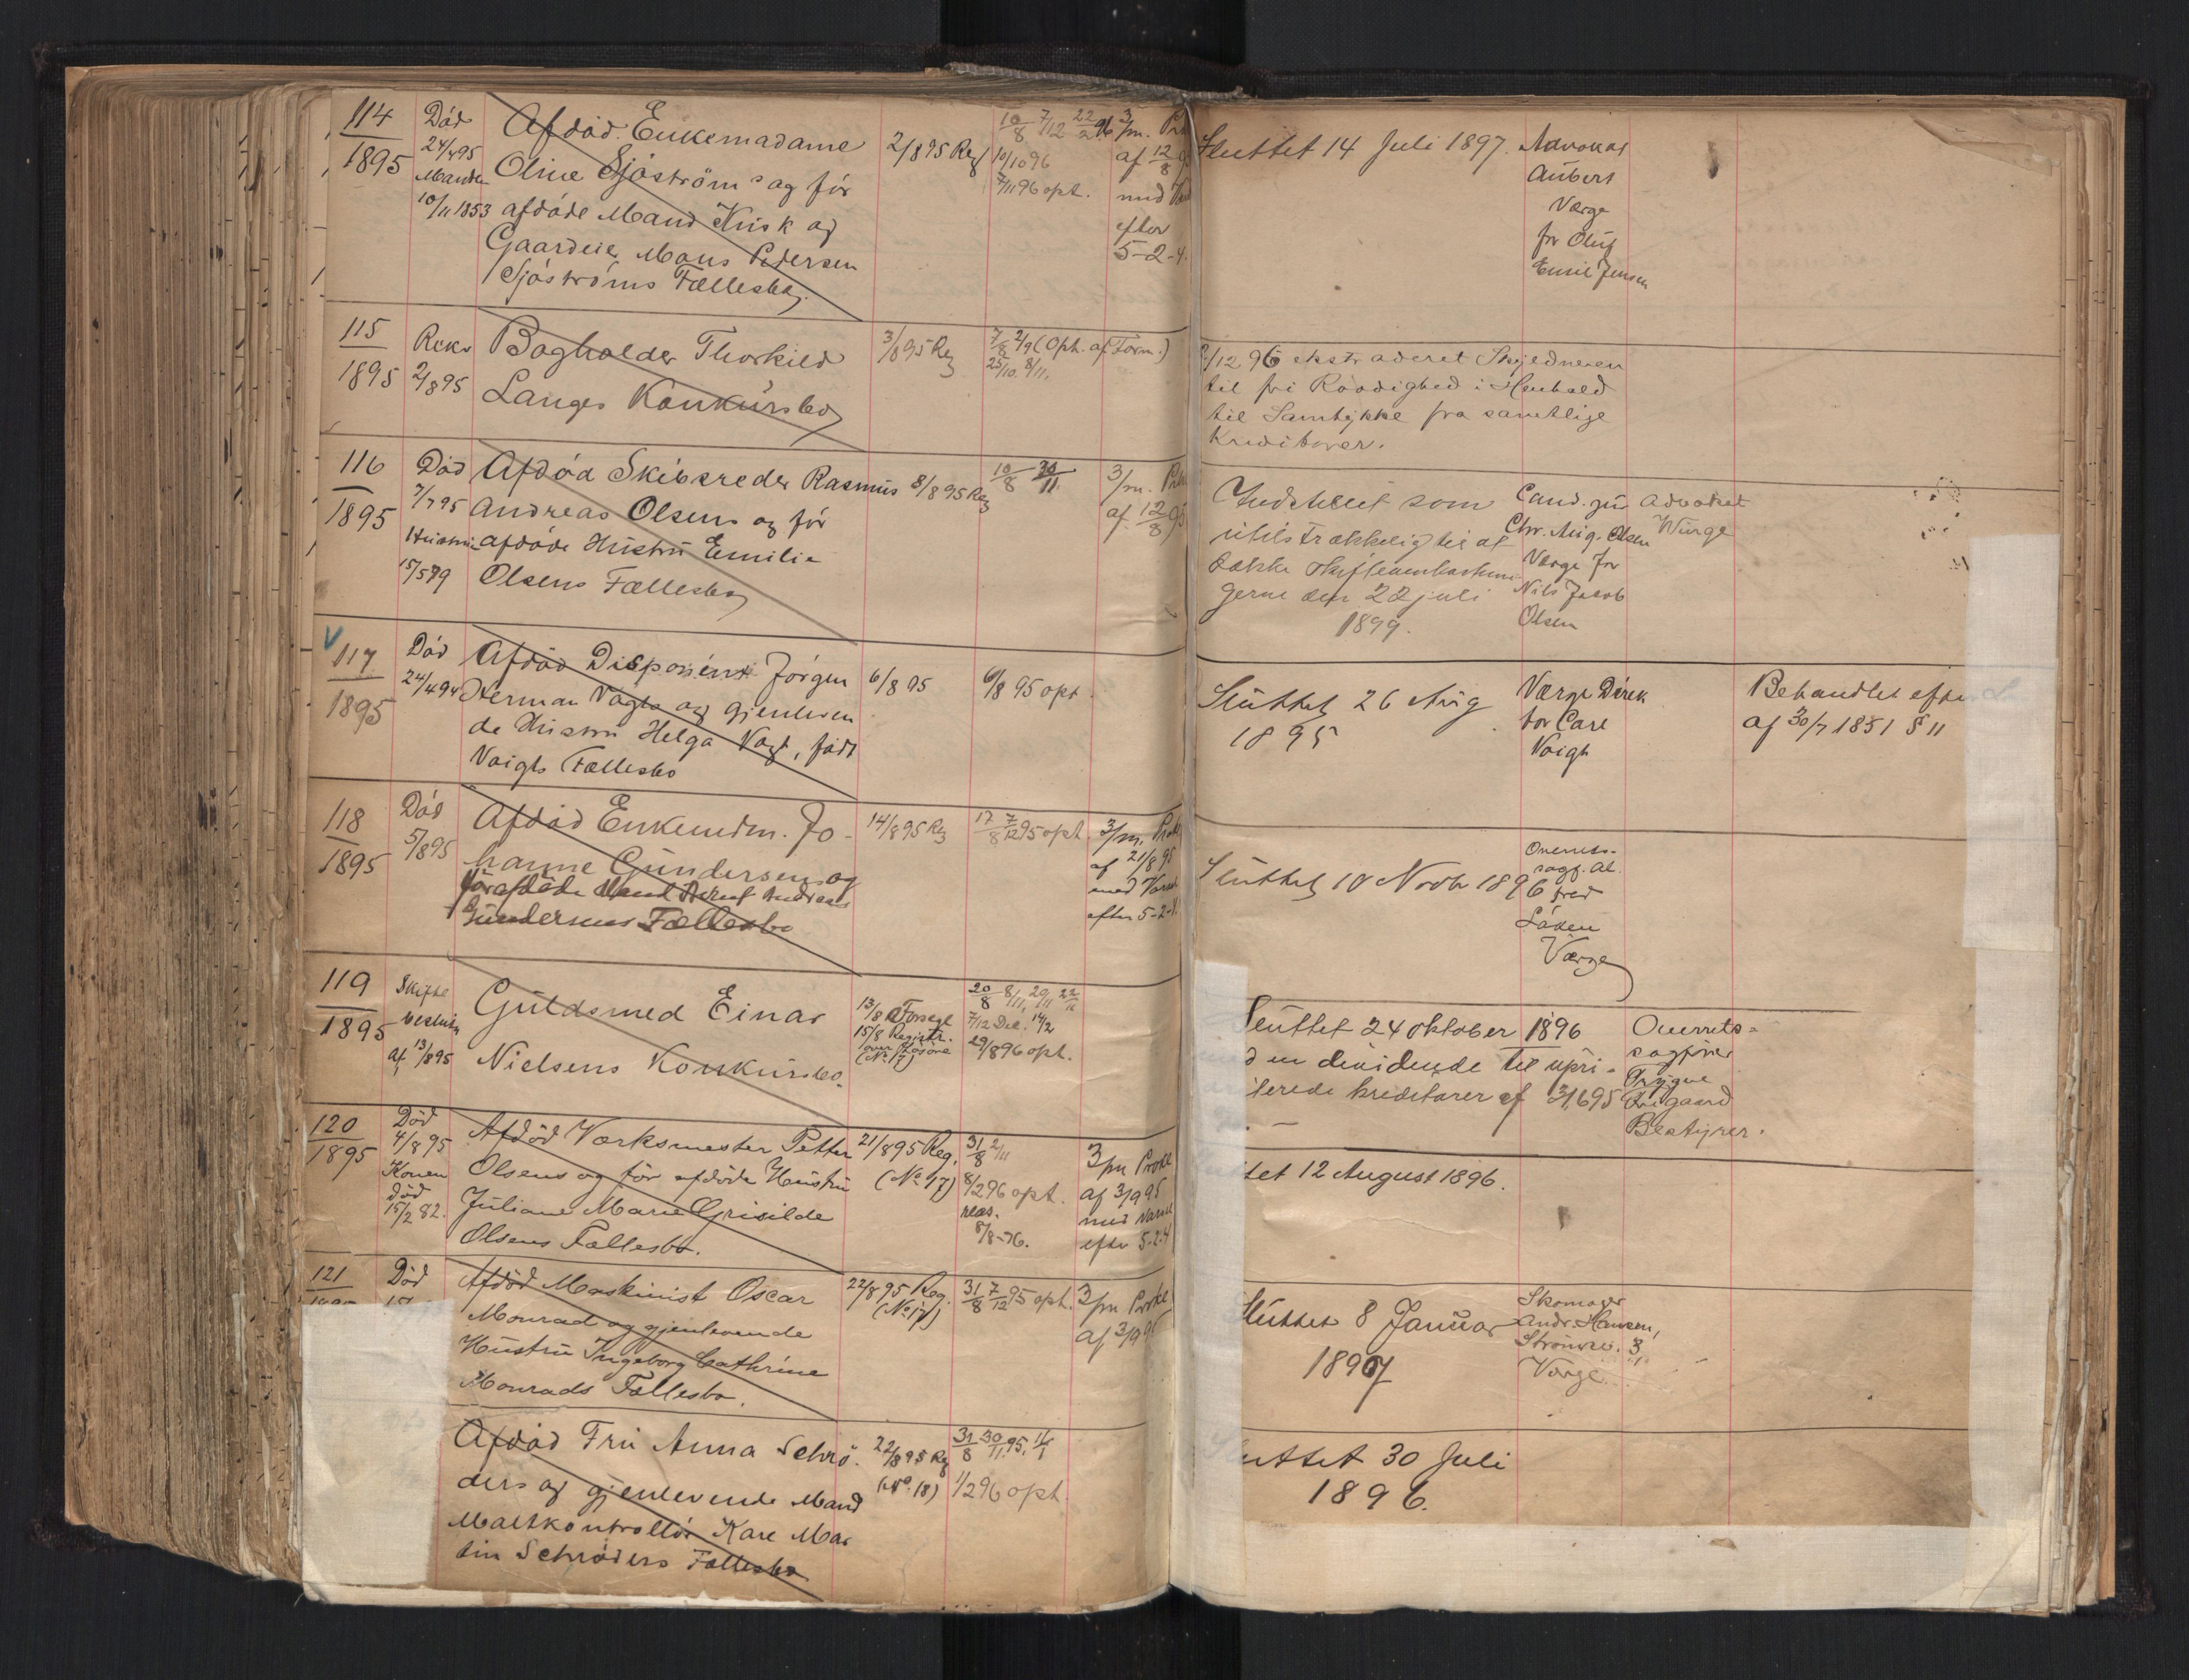 114
1895
Död
24/4 95
Manden
10/11 1853
Afdöd Enkemadame
Oline Sjöströms og för
afdöde Mand Kusk og
Gaardeier Mons Pedersen
Sjöströms Fællesbo
2/8 95 Reg
10/8 7/12 22/2 96
10/10 96
7/11 96 opt.
3/m. Pr
af 12/8 95
med Var
efter
5-2-4.
Sluttet 14 Juli 1897.
Advokat
Aubert
Værge
for Oluf
Emil Jensen
115
1895
Rekv
2/8 95
Bogholder Thorkild
Langes Konkursbo
3/8 95 Reg
7/8 2/9 (Oph. af Form.)
25/10. 8/11.
/12 96 ekstraderet Skyldneren
til fri Raadighed i Henhold
til Samtykke fra samtlige
Kreditorer.
116
1895
Död
7/7 95
Hustru
15/5 79
Afdöd Skibsreder Rasmus
Andreas Olsens og för
afdöde Hustru Emilie
Olsens Fællesbo
8/8 95 Reg
10/8 30/11.
3/m. Pr
af 12/8 95
Indstillet som
utilstrækkelig til at
dække Skifteomkostnin
gerne den 22 juli
1899.
Cand. jur
Chr. Aug. Olsen
Værge for
Nils Jacob
Olsen
Advokat
Wurge
117
1895
Död
24/4 94
Afdöd Disponent Jörgen
Herman Vogts og gjenleven
de Hustru Helga Vogt, födt
Voigts Fællesbo
6/8 95
6/8 95 opt.
Sluttet 26 Aug
1895
Værge Direk
tör Carl
Voigt
Behandlet efter
af 30/7 1851 § 11
118
1895
Död
5/8 95
Afdöd Enkemdm. Jo-
hanne Gundersens og
för afdöde Mand Andreas
Gundersens Fællesbo
14/8 95 Reg
17/8 7/12 95 opt
3/m. Prok
af 21/8 95
med Varsel
efter 5-2-4
Sluttet 10 Novbr 1896
Overrets-
sagf. Al
fred
Löken
Værge
119
1895
Skifte
beslutn
af 13/8 95
Guldsmed Einar
Nielsens Konkursbo.
13/8 Forsegl
15/8 Registr.
over Lösöre
(No 17)
20/8 8/11, 29/11 22/11
7/12 Del. 14/2
29/8 96 opt.
Sluttet 24 Oktober 1896
d en dividende til upri-
terede kreditorer af 31,695
Overrets-
sagförer
Trygve
Bestyrer.
120
1895
Död
4/8 95
Konen
död
15/2 82.
Afdöd Værksmester Petter
Olsens og för afdöde Hustru
Juliane Marie Grisilde
Olsens Fællesbo.
21/8 95 Reg.
(No 17)
31/8 2/11
8/2 96 opt.
reas.
8/8-96.
3/m Prokl
af 3/9 95
med Varsel
efter 5-2-4
tet 12 August 1896.
121
Död
Afdöd Maskinist Oscar
Monrad og gjenlevende
Hustru Ingeborg Cathrine
Monrads Fællesbo.
22/8 95 Reg.
(No 17)
31/8 7/12 95 opt.
3/m Prokl
af 3/9 95
Sluttet 8 Januar
1897
Skomager
Andr. Hansen,
Strömsv. 3
Værge.
Afdöd Fru Anna Schrö-
ders og gjenlevende Mand
Maltkontrollör Karl Mar
tin Schröders Fællesbo
22/8 95 Reg
(No 18)
31/8 30/11 95, 11/1
1/2 96 opt.
uttet 30 Juli
1896.